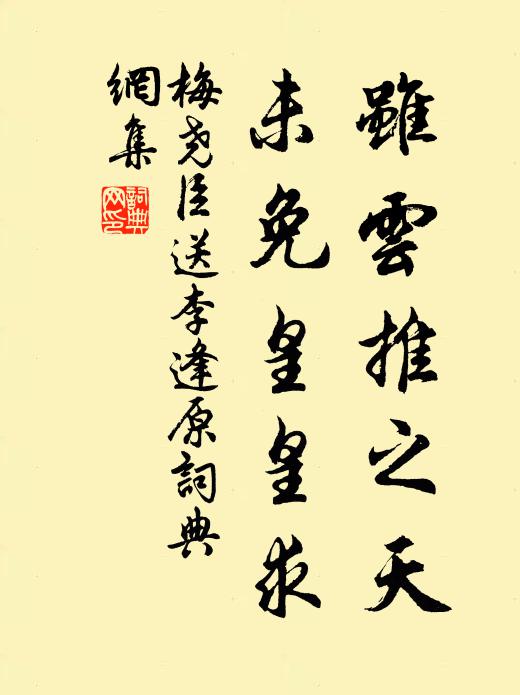 雖雲推之天
未免皇皇求
梅尧臣送李逢原詞典
網集
詞典
网印